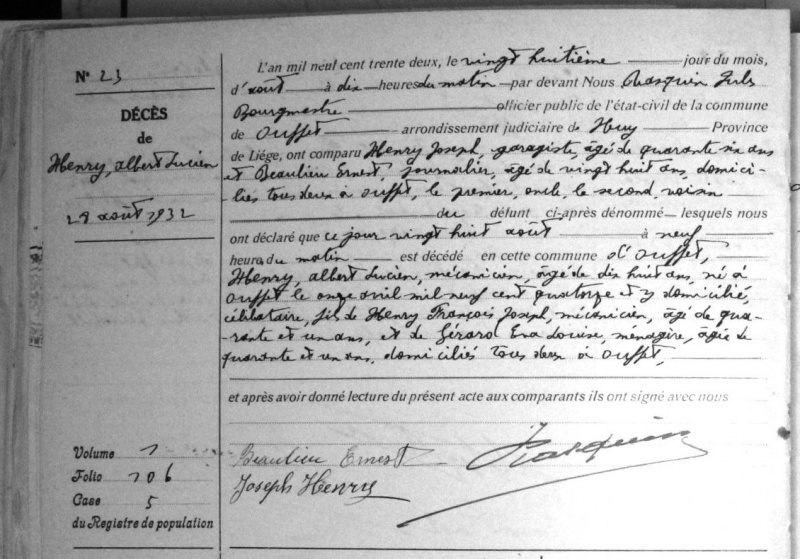 N° 23
DÉCÈS
de
Henry, albert Lucien
28 août 1932
Volume 1
Folio 106
Case 5
du Registre de population
L'an mil neuf cent trente deux, le vingt huitième jour du mois,
d'août à dix heures du matin par devant Nous Rasquin Jules
Bourgmestre officier public de l'état-civil de la commune
de Ouffet arrondissement judiciaire de Huy Province
de Liége, ont comparu Henry Joseph, garagiste, âgé de quarante six ans
et Beaulieu Ernest, journalier, âgé de vingt huit ans, domici-
liés tous deux à Ouffet, le premier, oncle, le second, voisin
du défunt ci-après dénommé lesquels nous
ont déclaré que ce jour vingt huit août à neuf
heures du matin est décédé en cette commune d'Ouffet,
Henry, albert Lucien, mécanicien, âgé de dix huit ans, né à
Ouffet le onze avril mil neuf cent quatorze et y domicilié,
célibataire, fils de Henry François Joseph, mécanicien, âgé de qua-
rante et un ans, et de Gérard Eva Louise, ménagère, âgée de
quarante et un ans, domiciliés tous deux à Ouffet,
et après avoir donné lecture du présent acte aux comparants ils ont signé avec nous
Beaulieu Ernest
J Rasquin
Joseph Henry